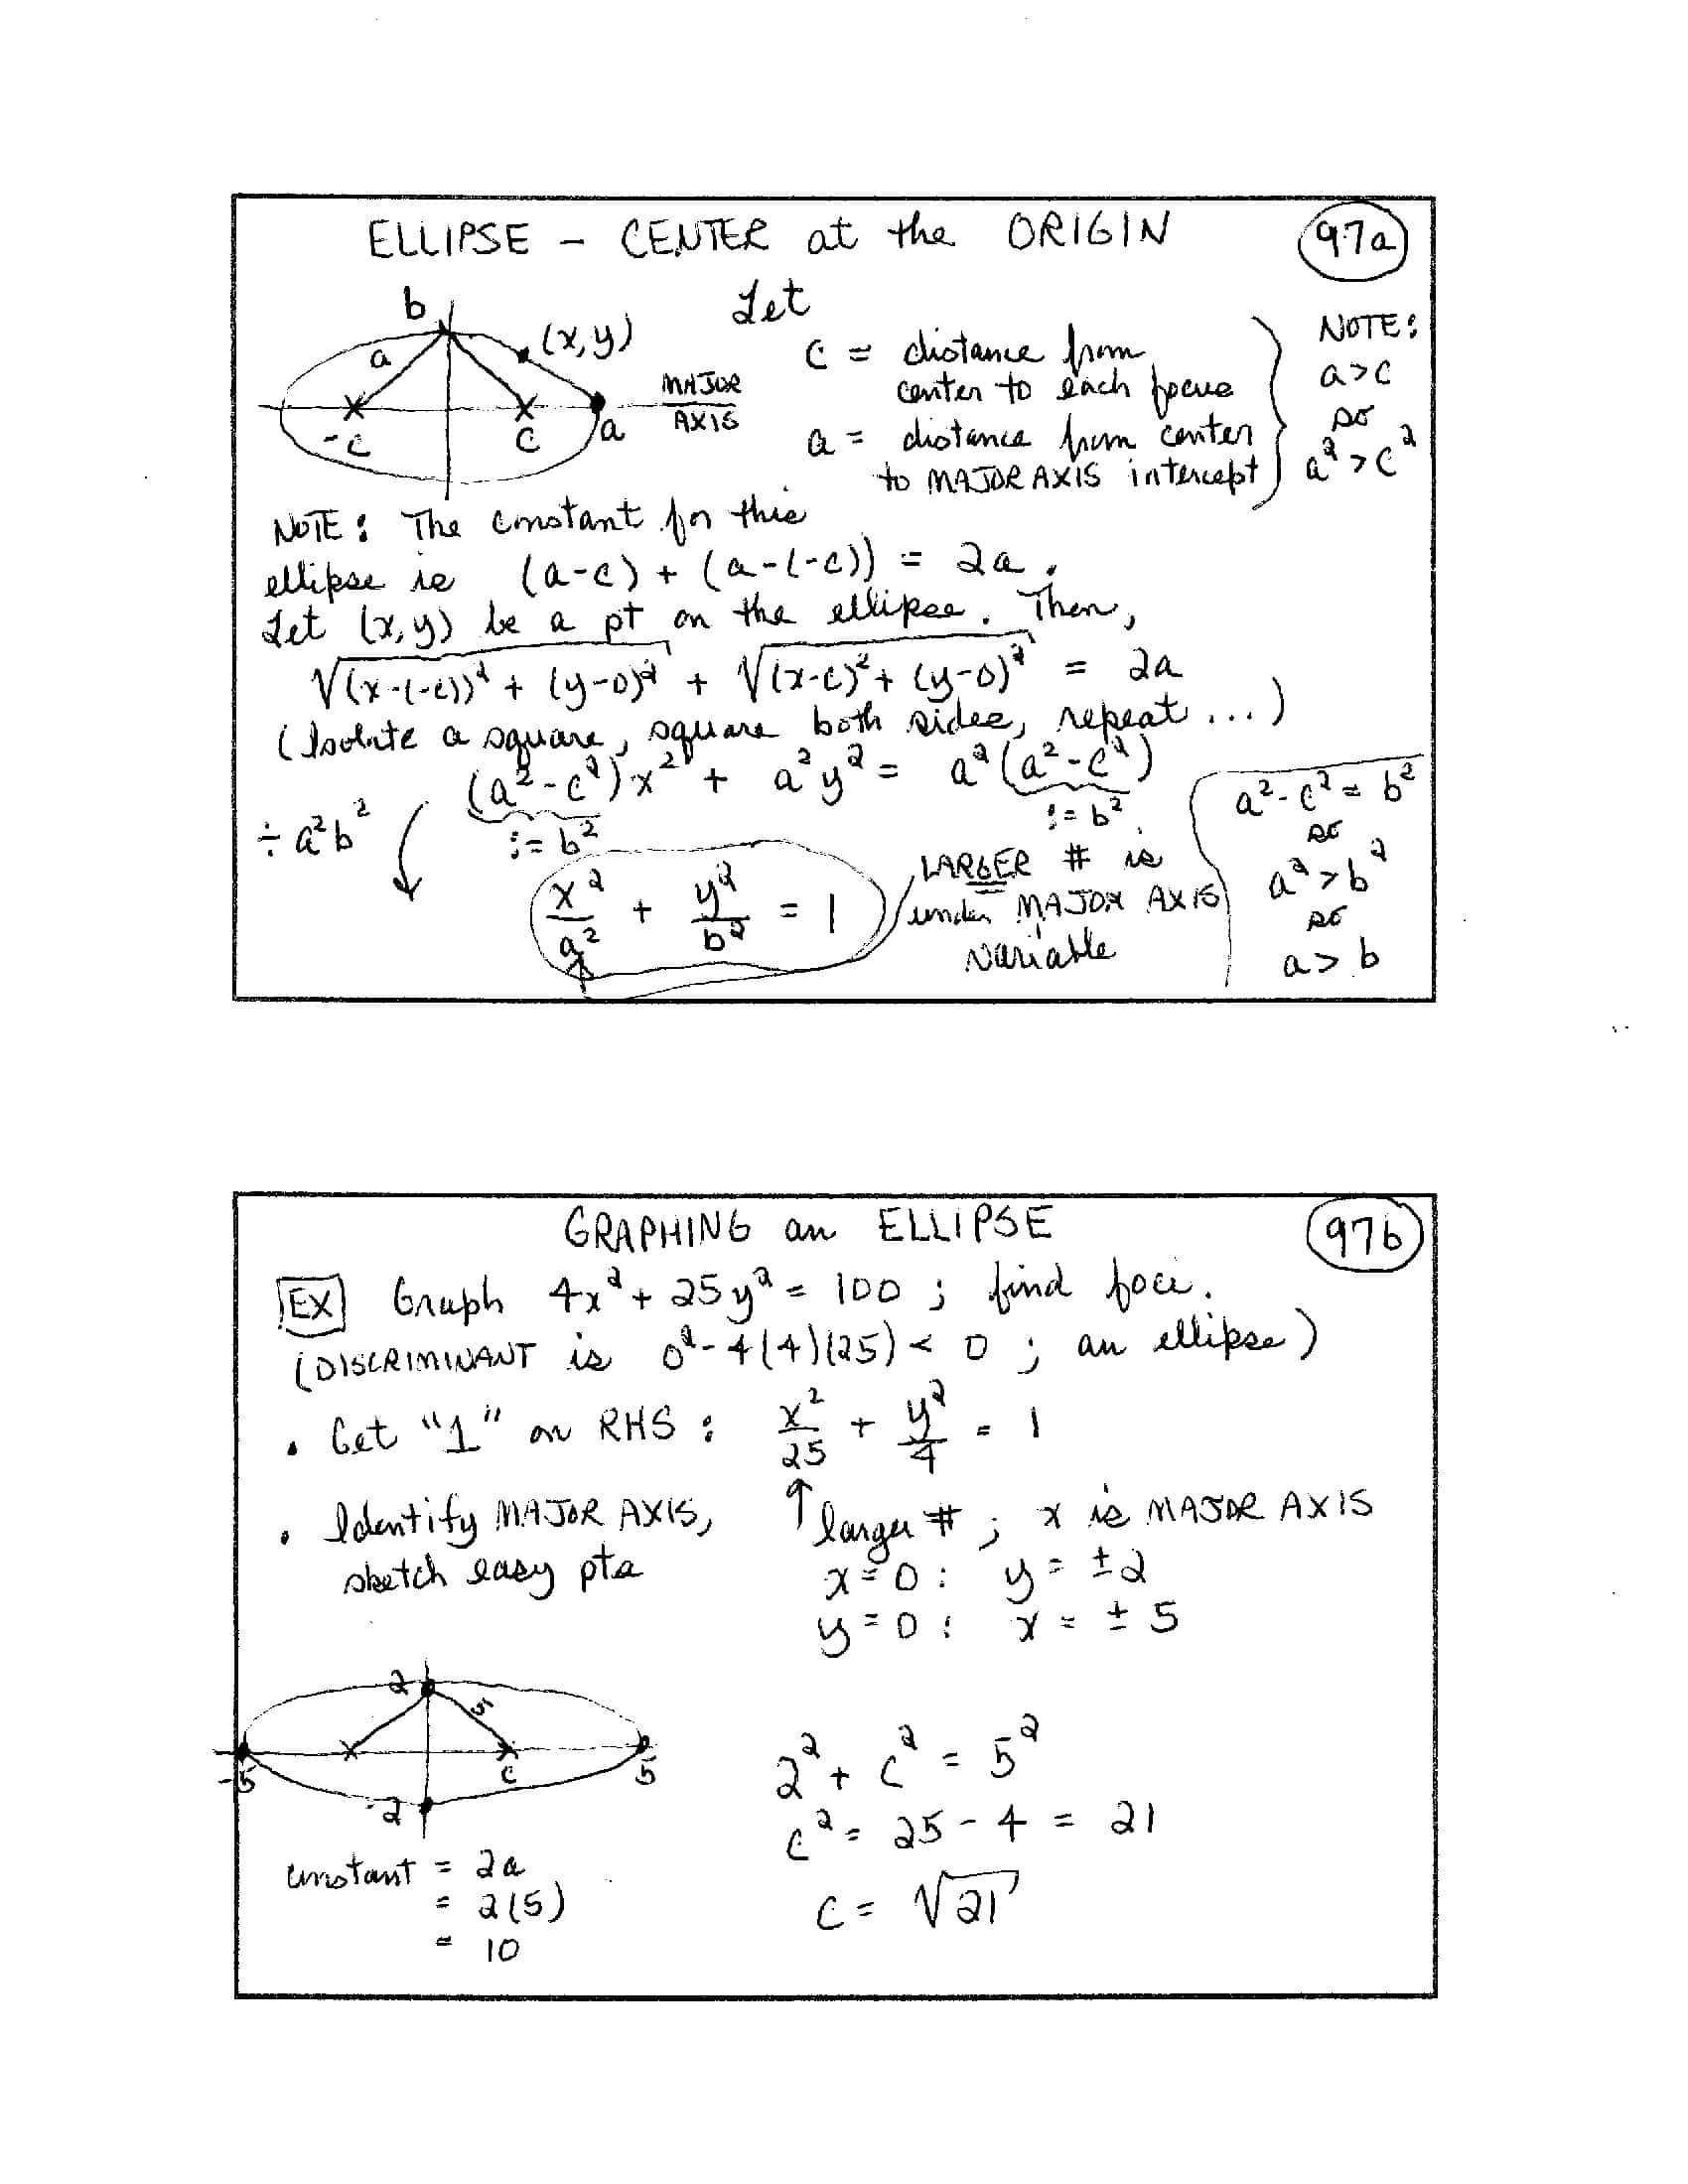 ELLIPSE - CENTER at the ORIGIN
97a
b
a
(x,y)
-c
c
a
MAJOR
AXIS
Let
c = distance from
center to each focus
a = distance from center
to MAJOR AXIS intercept
NOTE:
a>c
so
a²>c²
NOTE: The constant for this
ellipse is (a-c) + (a-(-c)) = 2a.
Let (x,y) be a pt on the ellipse. Then,
√((x-(-c))² + (y-0)²) + √((x-c)² + (y-0)²) = 2a
(Isolate a square, square both sides, repeat ...)
(a²-c²)x² + a²y² = a²(a²-c²)
:= b²
:= b²
÷ a²b²
x²/a² + y²/b² = 1
LARGER # is
under MAJOR AXIS
variable
a²-c² = b²
so
a²>b²
so
a>b
GRAPHING an ELLIPSE
97b
EX Graph 4x² + 25y² = 100 ; find foci.
(DISCRIMINANT is 0² - 4(4)(25) < 0 ; an ellipse)
• Get "1" on RHS : x²/25 + y²/4 = 1
• Identify MAJOR AXIS, ↑ larger # ; x is MAJOR AXIS
sketch easy pts x=0: y = ±2
y=0: x = ±5
2
5
-5
c
5
-2
2² + c² = 5²
c² = 25 - 4 = 21
c = √21
constant = 2a
= 2(5)
= 10